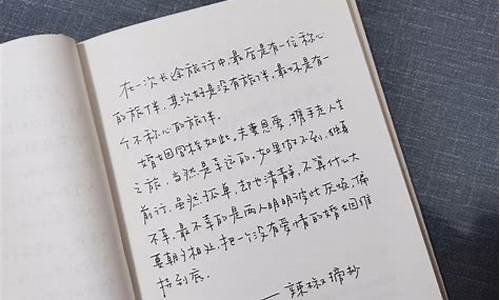 在一次长途旅行中,最好是有一位称心
的旅伴,其次好是没有旅伴,最坏是有一
个不称心的旅伴。
婚姻同样如此。夫妻恩爱,携手走人生
之旅,当然是幸运的。如果做不到,独自
前行,虽然孤单,却也清静,不算什么大
不幸。最不幸的是两人明明彼此厌烦,偏
要朝夕相处,把一个没有爱情的婚姻维
持到底。
——辣椒摘抄